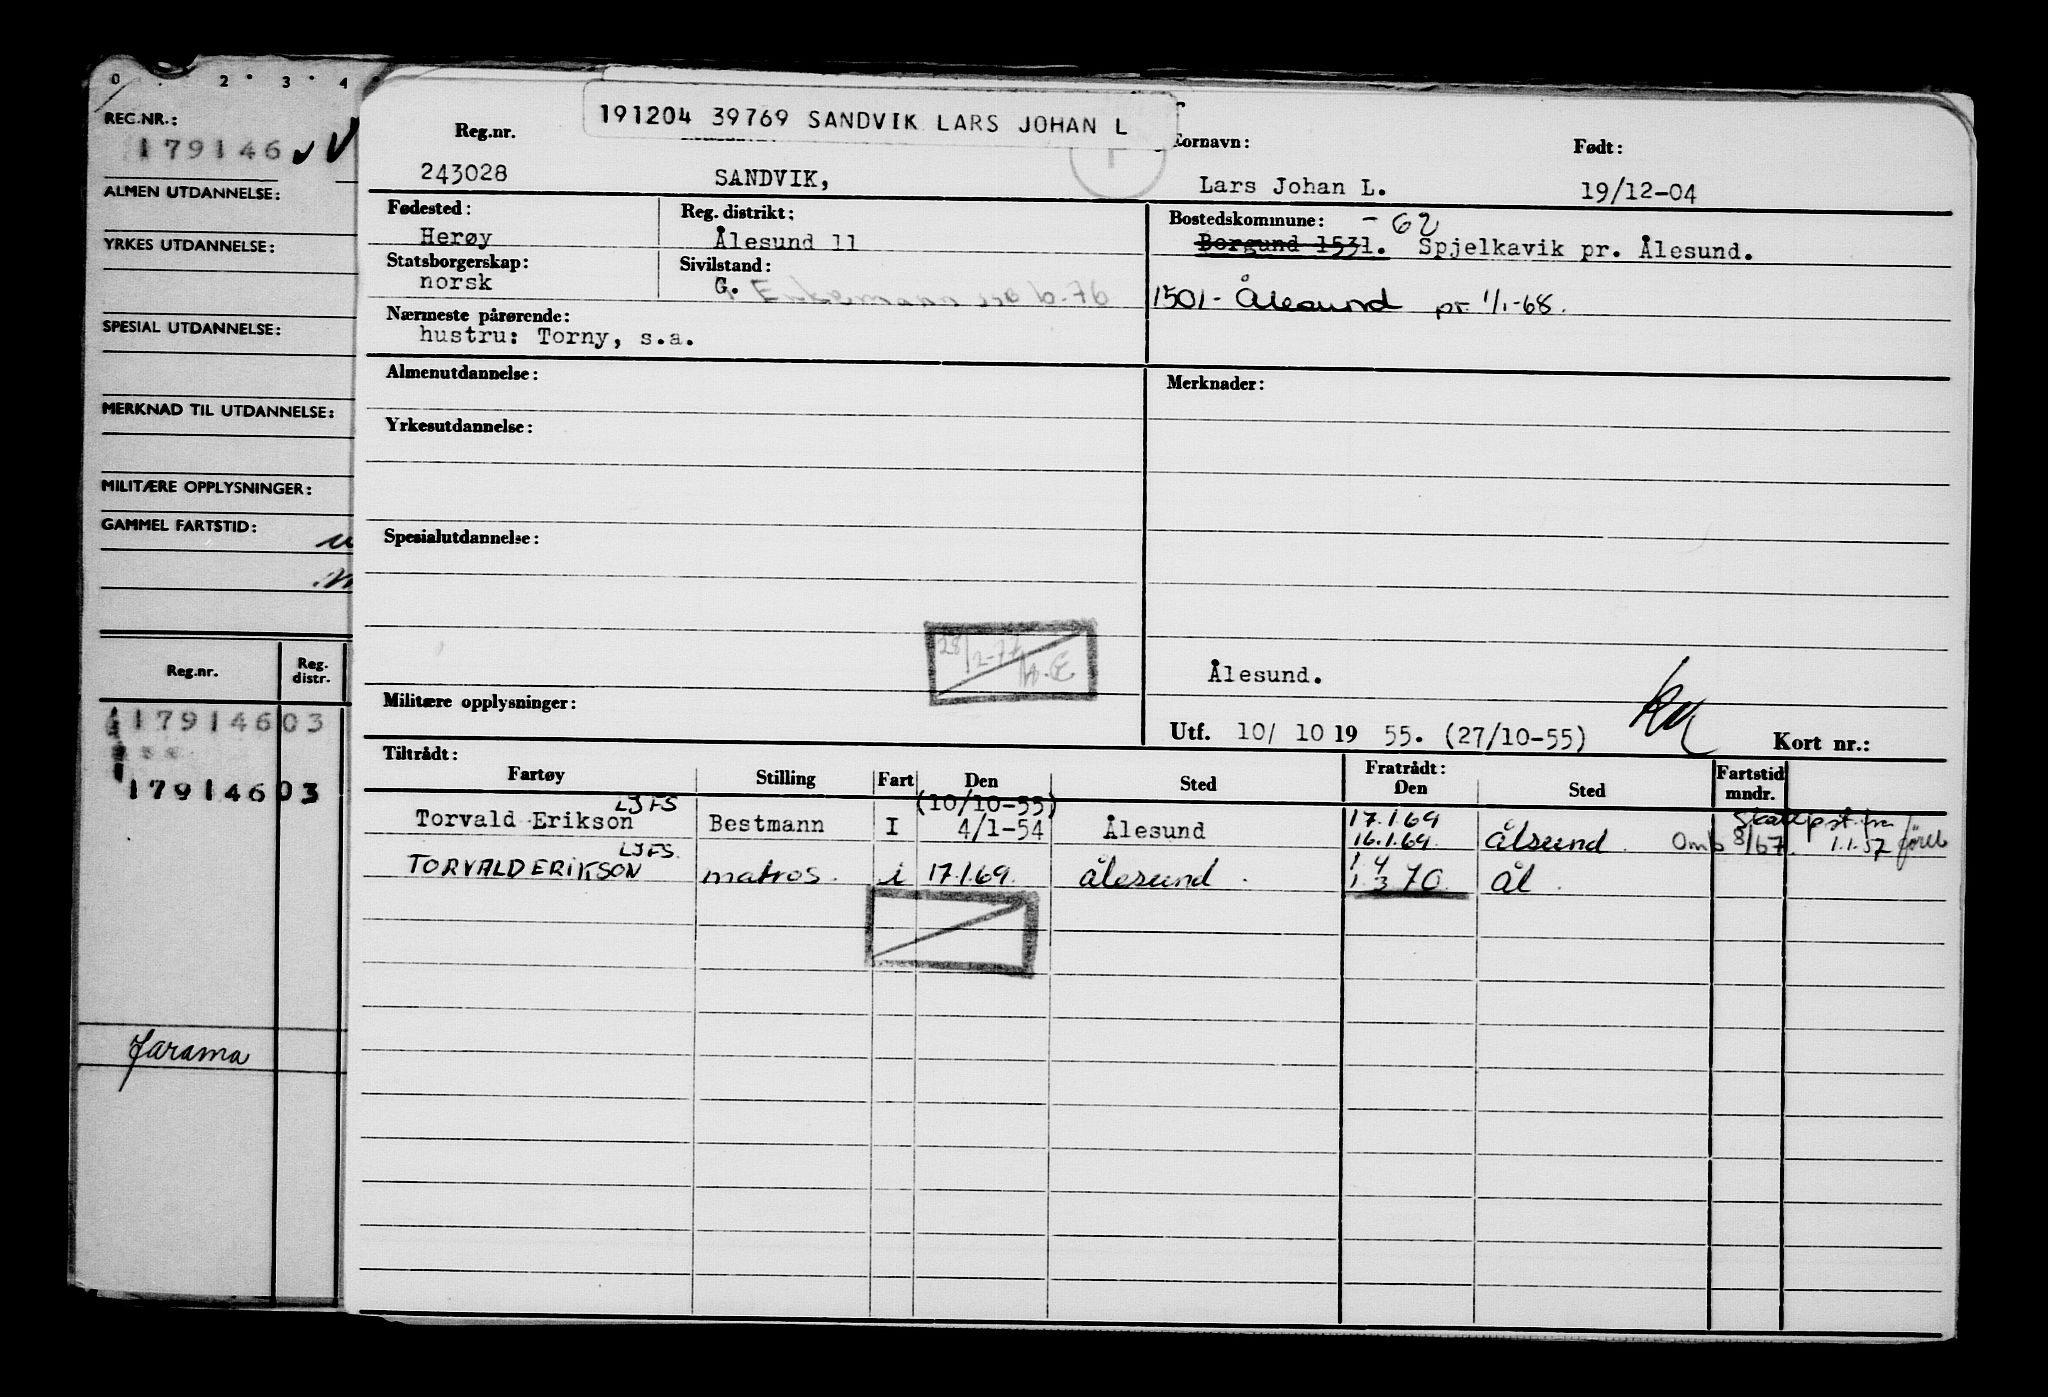 0 2 3 4
REG.NR.:
179146
ALMEN UTDANNELSE:
YRKES UTDANNELSE:
SPESIAL UTDANNELSE:
MERKNAD TIL UTDANNELSE:
MILITÆRE OPPLYSNINGER:
GAMMEL FARTSTID:
Reg.nr. Reg. distr.
179146 03
179146 03
Jarama
191204 39769 SANDVIK LARS JOHAN L
Reg.nr. Fornavn: Født:
243028 SANDVIK, Lars Johan L. 19/12-04
Fødested: Reg. distrikt: Bostedskommune: - 62
Herøy Ålesund 11 Borgund 1531. Spjelkavik pr. Ålesund.
Statsborgerskap: Sivilstand:
norsk G. Enkemann 76
1501 - Ålesund pr. 1/1-68.
Nærmeste pårørende:
hustru: Torny, s.a.
Almenutdannelse: Merknader:
Yrkesutdannelse:
Spesialutdannelse:
28/2-77
Ålesund.
Militære opplysninger:
Utf. 10/ 10 19 55. (27/10-55) Kort nr.:
Tiltrådt: Fratrådt:
Fartøy Stilling Fart Den Sted Den Sted Fartstid mndr.
LJFS (10/10-55) 17.1.69
Torvald Erikson Bestmann I 4/1-54 Ålesund 16.1.69. Ålsund. Omb 8/67. 1.1.57
LJFS. 1 4
TORVALD ERIKSON matros. i 17.1.69. Ålesund. 1. 3 70 Ål.